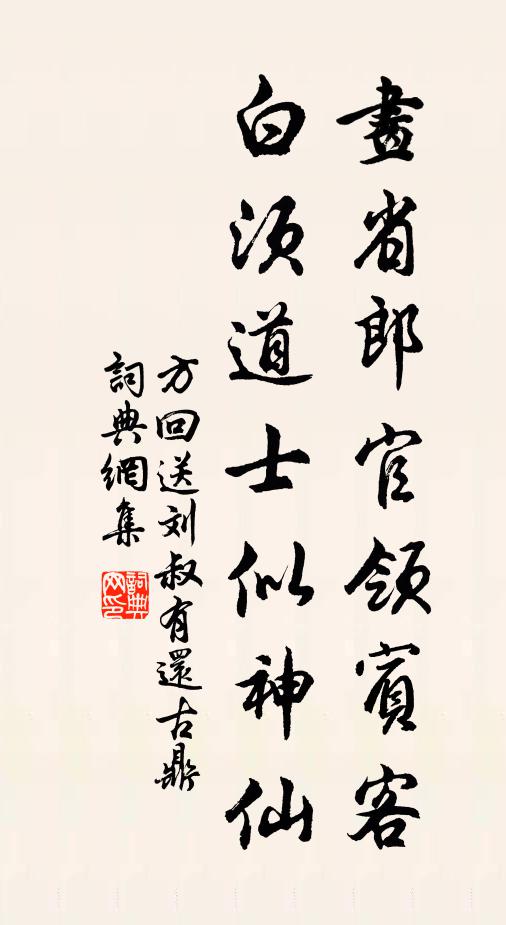 畫省郎官領賓客
白須道士似神仙
方回送刘叔有還古鼎
詞典網集
詞典网印